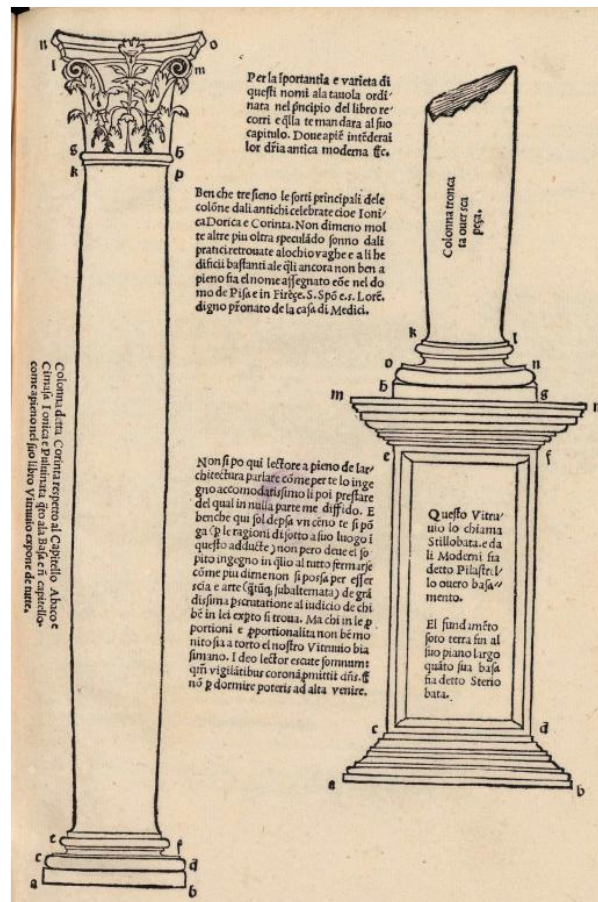 n
o
l
m
g
h
k
p
Per la sportantia e varieta di
questi nomi ala tauola ordi
nata nel pncipio del libro re-
corri e qlla te mandara al suo
capitulo. Doue apiē intēderai
lor dria antica moderna
Ben che tre sieno le sorti principali dele
colōne dali antichi celebrate cioe Ioni
ca Dorica e Corinta. Non dimeno mol
te altre piu oltra speculādo sonno dali
pratici retrouate alochio vaghe e a li he
dificii bastanti ale qli ancora non ben a
pieno sia el nome assegnato eōe nel do
mo de Pisa e in Firēçe. S. Spō e. s. Lorē.
digno pronato de la casa di Medici.
Colonna detta Corinta respetto al Capitello Abaco e
Cimasa Ionica e Puluinata qto ala Basa e capitello.
come apieno nel suo libro Vitruuio expone de tutte.
Non si po qui lectore a pieno de lar-
chitectura parlare cōme per te lo inge
gno accomodatissimo li poi prestare
del qual in nulla parte me diffido. E
benche qui sol depsa vn cēno te si pō
ga (p le ragioni di sotto a suo luogo i
questo adducte) non pero deue el so
pito ingegno in qlio al tutto fermarse
cōme piu dirne non si possa per esser
scia e arte (qtūq; subalternata) de grā
dissima pscrutatione al iudicio de chi
bē in lei expto si troua. Ma chi in le p
portioni e pportionalita non bē mo
nito sia a torto el nostro Vitruuio bia
simano. I deo lector excute somnum:
qm vigilātibus coronā pmittit
nō p dormire poteris ad alta venire.
e
f
c
d
a
b
Colonna tronca
ta ouer sca
peça.
k
l
o
n
h
g
m
n
e
f
Questo Vitru-
uio lo chiama
Stillobata. e da
li Moderni sia
detto Pilastrel
lo ouero basa-
mento.
El fundamēto
soto terra fin al
suo piano largo
quāto sua basa
sia detto Sterio
bata.
c
d
a
b